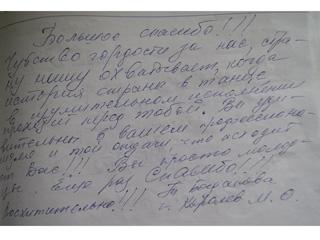 Большое спасибо!!!
Чувство гордости за нас, стра-
ну нашу охватывает, когда
история страны в танце
в изумительном исполнении
проходит перед тобой. Вы уди-
вительны в вашем профессиона-
лизме и той отдачи что исходит
от Вас!!! Вы просто молод-
цы. Еще раз Спасибо!!!
Восхитительно!!! Т Богданова
г. Королев М.О.